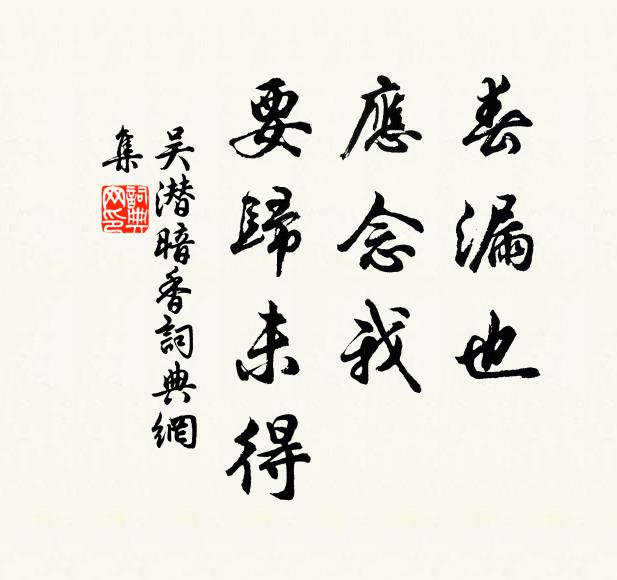 春漏也
應念我
要歸未得
吳潛暗香詞典網
集
詞典
网印